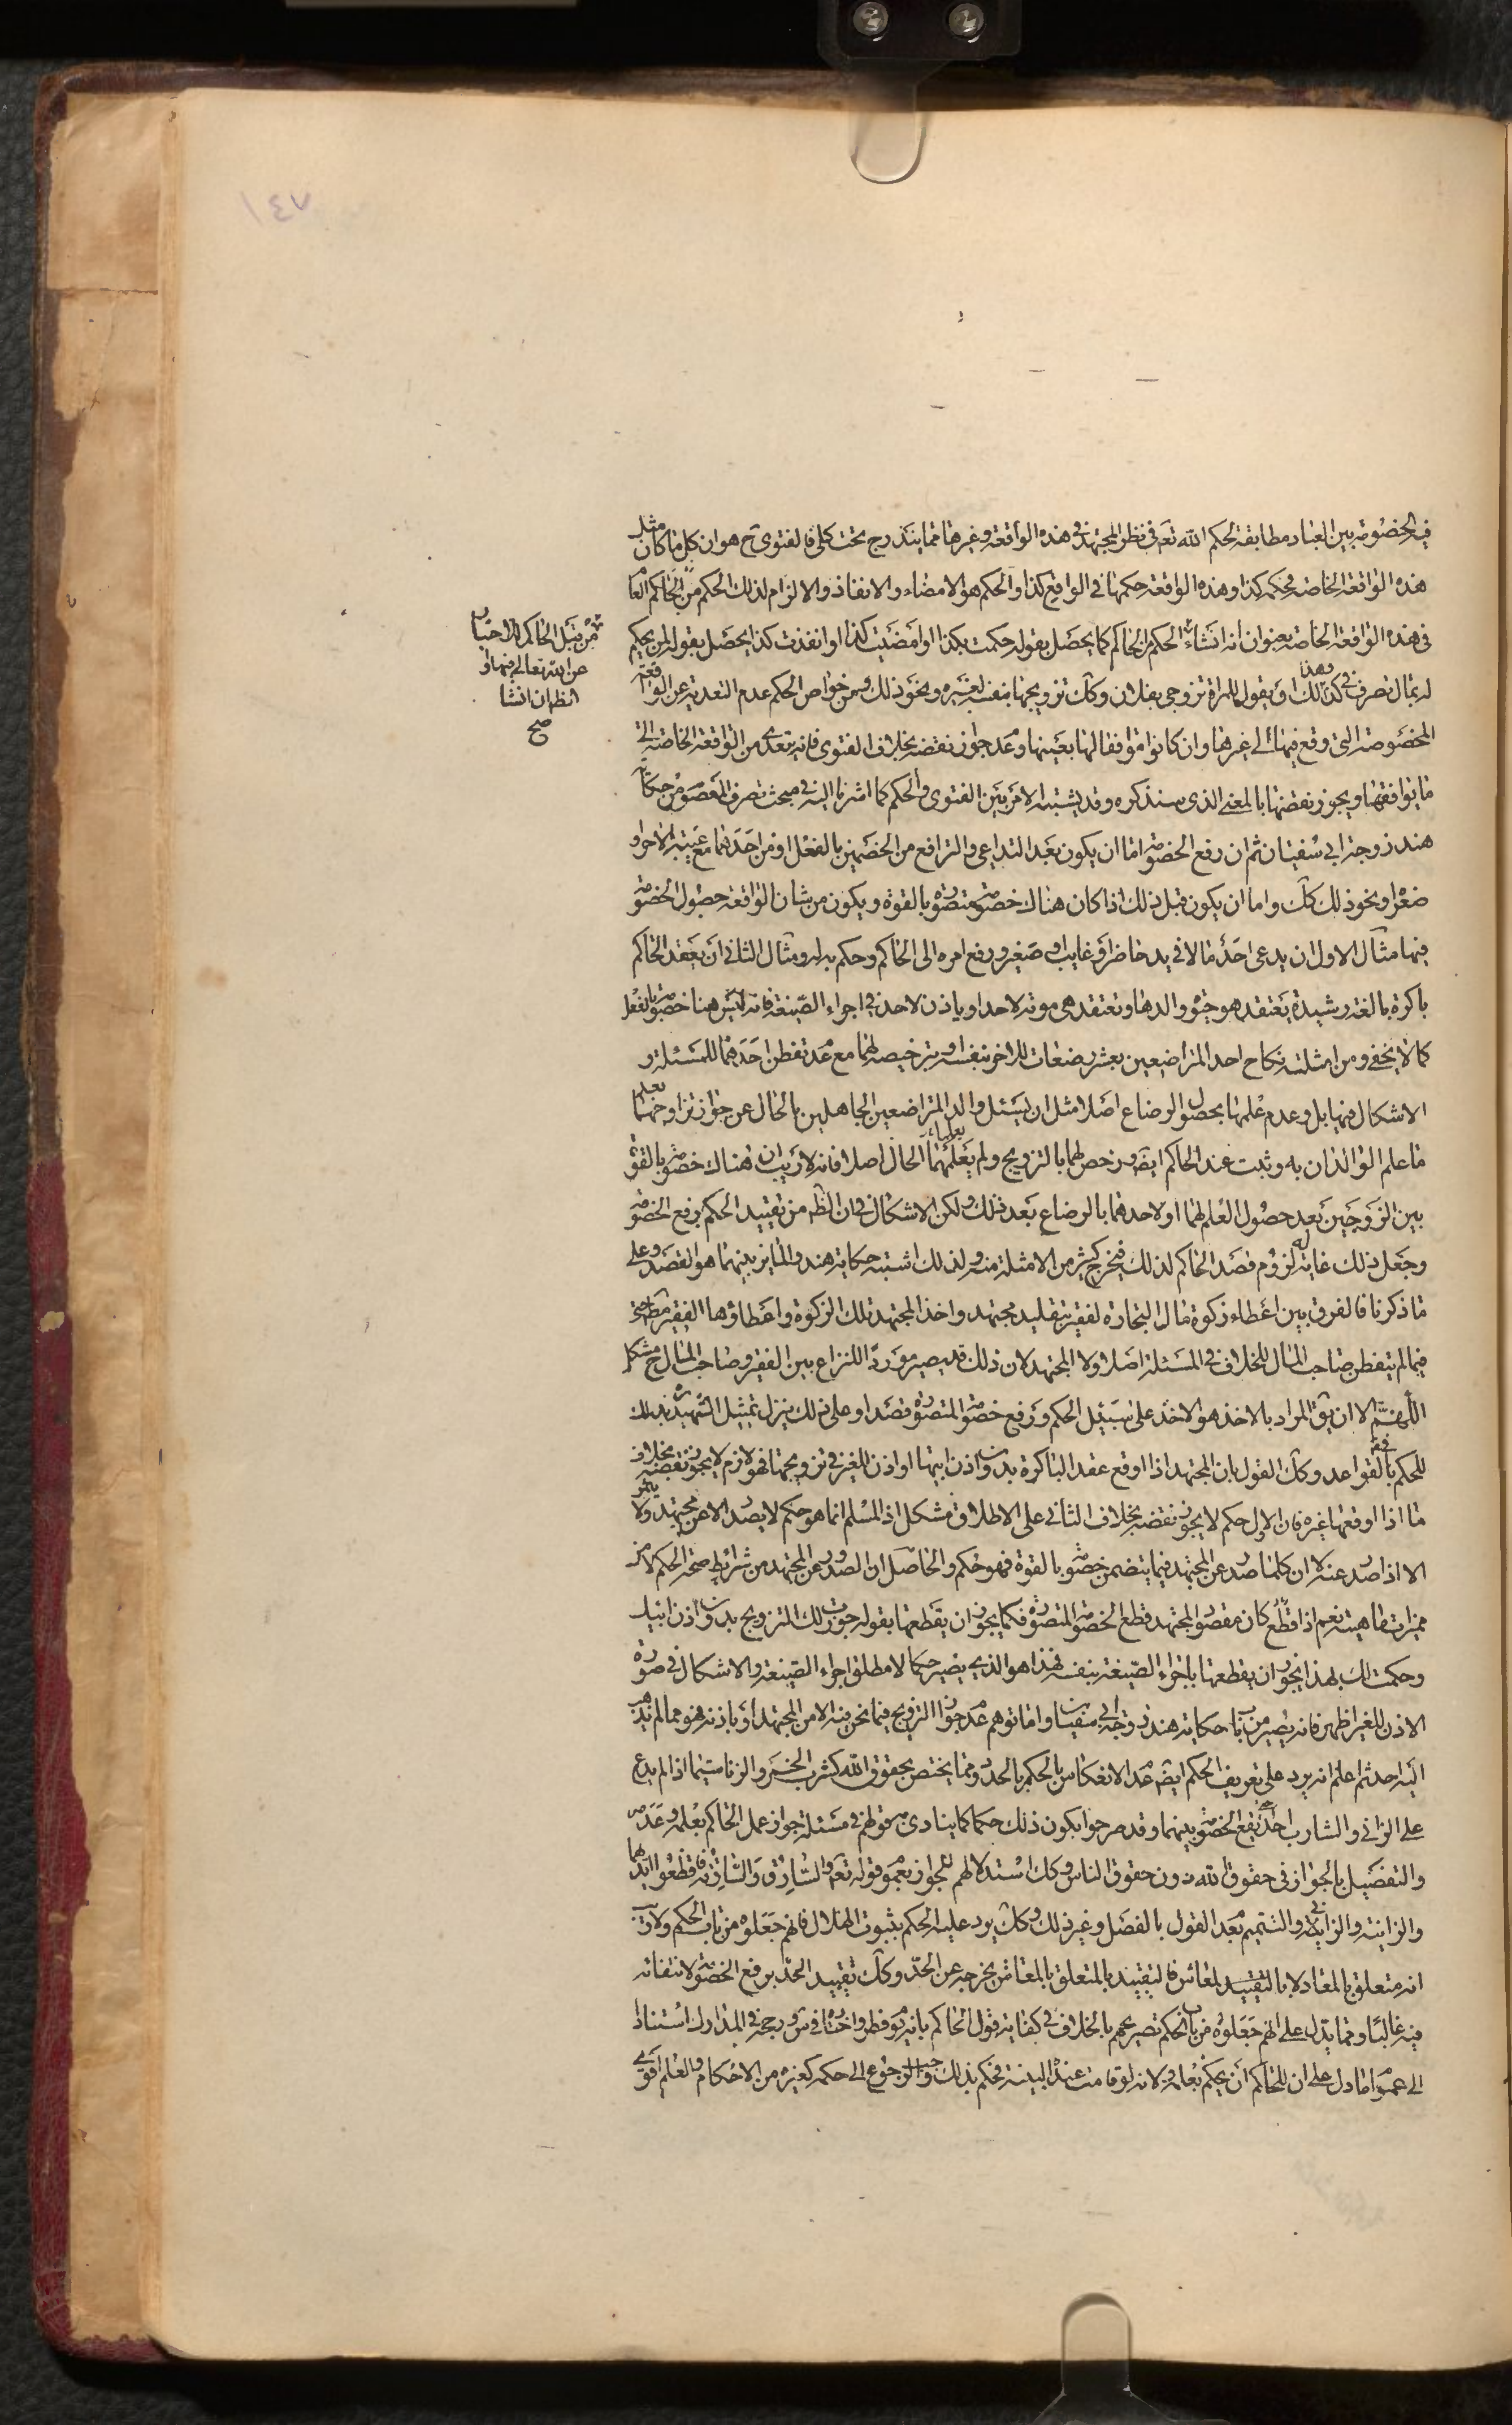 ١٤٧
فيه الخصومة بين العباد مطابقة لحكم الله تعم في نظر المجتهد في هذه الواقعة وغيرها مما يندرج تحت كلى فالفتوى ح هو ان كل ما كان مثل
هذه الواقعة الخاصة فحكمه كذا وهذه الواقعة حكمها في الواقع كذا والحكم هو الامضاء والانفاذ والالزام لذلك الحكم من الحاكم العام
في هذه الواقعة الخاصة بعنوان انه انشاء الحكم من الحاكم كما يحصل بقوله حكمت بكذا او امضيت كذا او انفذت كذا يحصل بقوله لمن يحكم
له بمال تصرف في هذا وكذلك او يقول للمراة تزوجى بفلان وكك تزويجها بنفسه لغيره ونحو ذلك ومن خواص الحكم عدم التعدية عن الواقعة
المخصوصة التى وقع فيها الى غيرها وان كانوا موافقا لها بعينها وعدم جواز نقضه بخلاف الفتوى فانه يتعدى من الواقعة الخاصة الى
ما يوافقها ويجوز نقضها بالمعنى الذى سنذكره وقد يشتبه الامر بين الفتوى والحكم كما اشرنا اليه في مبحث تصرف المعصوم من حكاية
هند زوجة ابى سفيان ثم ان رفع الخصومة اما ان يكون بعد التداعى والترافع من الخصمين بالفعل او من احدهما مع غيبة الاخر او
صغرا ونحو ذلك كك واما ان يكون قبل ذلك اذا كان هناك خصومة متصورة بالقوة ويكون من شان الواقعة حصول الخصومة
فيها مثال الاول ان يدعى احد مالا في يد حاضر او غايب او صغير ورفع امره الى الحاكم وحكم به له ومثال الثانى ان يعقد الحاكم
باكرة بالغة رشيدة يعتقد هو حيوة والدها وتعتقد هى موته لاحد او ياذن لاحد في اجراء الصيغة فانه ليس هنا خصومة بالفعل
كما لا يخفى ومن امثلته نكاح احد المتراضعين بعشر رضعات للاخر بنفسه او بترخيصه لهما مع عدم تفطن احدهما للمسئلة و
الاشكال فيها بل وعدم علمها بحصول الرضاع اصلا مثل ان يسئل والدا المتراضعين الجاهلين بالحال عن جواز تزاوجهما بعلم
ما علم الوالدان به وثبت عند الحاكم ايضا ورخص لهما بالتزويج ولم يعلمهما بعلمهما الحال اصلا فانه لا ريب ان هناك خصومة بالقوة
بين الزوجين بعد حصول العلم لهما او لاحدهما بالرضاع بعد ذلك ولكن الاشكال في ان الظ من تقييد الحكم برفع الخصومة
وجعل ذلك غاية له لزوم قصد الحاكم لذلك فيخرج كثير من الامثلة منه ولذلك اشتبه حكاية هند والمايز بينهما هو القصد وعلى
ما ذكرنا فالفرق بين اعطاء زكوة مال التجارة لفقير بتقليد مجتهد واخذ المجتهد تلك الزكوة واعطاؤها الفقير مطلقا حتى
فيما لم يتفطن صاحب المال للخلاف في المسئلة اصلا ولا المجتهد لان ذلك قد يصير موردا للنزاع بين الفقير وصاحب المال ح مشكل
اللهم الا ان يق المراد بالاخذ هو الاخذ على سبيل الحكم ورفع خصومة المتصورة قصدا وعلى ذلك ينزل تمثيل الشهيد ره بذلك
للحكم بالقواعد وكك القول بان المجتهد اذا اوقع عقد الباكرة بدون اذن ابيها او اذن للغير في تزويجها فهو لازم لا يجوز نقضه بخلاف
ما اذا اوقعها غيره فان الاول حكم لا يجوز نقضه بخلاف الثانى على الاطلاق مشكل اذ المسلم انما هو حكم لا يصدر الا عن مجتهد ولا
الا اذا صدر عنه لا ان كلما صدر عن المجتهد فيما يتضمن خصومة بالقوة فهو حكم والحاصل ان الصدور عن المجتهد من شرائط صحة الحكم لا من
مميزات ماهيته نعم اذا كان مقصود المجتهد قطع الخصومة المتصورة فكما يجوز ان يقطعها بقوله جوزت لك التزويج بدون اذن ابيك
وحكمت لك بهذا يجوز ان يقطعها باجراء الصيغة بنفسه فهذا هو الذى يصير حكما لا مطلق اجراء الصيغة والاشكال في صورة
الاذن للغير اظهر فانه يصير من باب حكاية هند زوجة ابى سفيان واما توهم عدم جواز التزويج فيما نحن فيه الا من المجتهد او باذنه فهو مما لم يذهب
اليه احد ثم اعلم انه يرد على تعريف الحكم ايضا عدم الانعكاس بالحكم بالحدود مما يختص بحقوق الله كشرب الخمر والزنا سيما اذا لم يدع
على الزانى والشارب احد حتى يقع الخصومة بينهما وقد صرحوا بكون ذلك حكما كما ينادى به قولهم في مسئلة جواز عمل الحاكم بعلمه وعدمه
والتفصيل بالجواز في حقوق الله دون حقوق الناس وكك استدلالهم للجواز بعموم قوله تعم والسارق والسارقة فاقطعوا ايديهما
والزانية والزانى والتتميم بعدم القول بالفصل وغير ذلك وكك يرد عليه الحكم بثبوت الهلال فانهم جعلوه من باب الحكم ولا ريب
انه متعلق بالمعاد لا بالمعاش فالتقييد بالمتعلق بالمعاش يخرجه عن الحد وكك تقييد الحد برفع الخصومة لانتفائه
فيه غالبا ومما يدل على انهم جعلوه من باب الحكم تصريحهم بالخلاف في كفاية قول الحاكم بانه يوم فطر واختاره في س ورجحه في المدارك استنادا
الى عموم ما دل على ان للحاكم ان يحكم بعلمه ولانه لو قامت عنده البينة فحكم بذلك وجب الرجوع الى حكمه كغيره من الاحكام والعلم اقوى
من قبل الحاكم لا اخبار
عن الله تعالى فيهما و
الظ ان انشا
صح